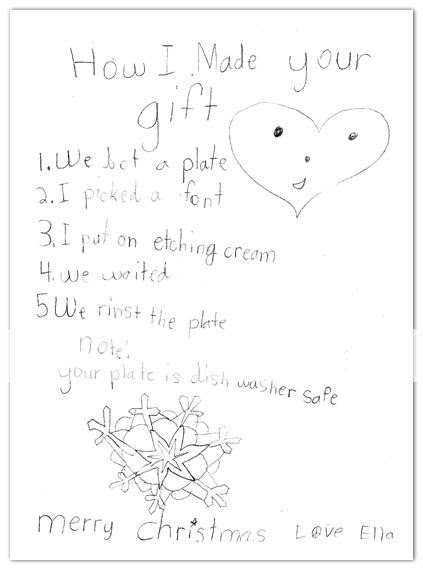 How I Made your
gift
1. We bot a plate
2. I picked a font
3. I put on etching cream
4. we waited
5 We rinst the plate
note!
your plate is dish washer safe
merry christmas Love Ella